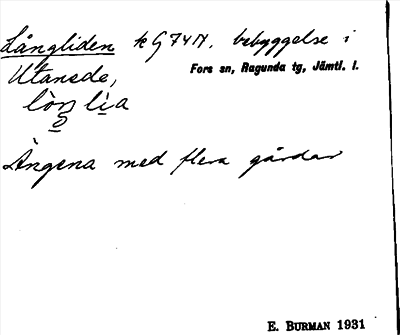 Långliden k G74N. bebyggelse i
Utanede,
Fors sn, Ragunda tg, Jämtl. l.
Ängena med flera gårdar
E. BURMAN 1931